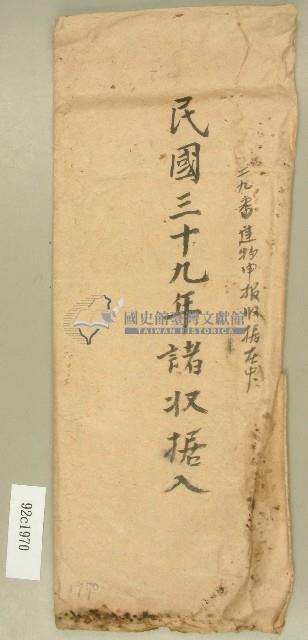 三九番建物申报收据在中
民國三十九年諸収据入
國史館臺灣文獻館
TAIWAN HISTORICA
92c1970
1970